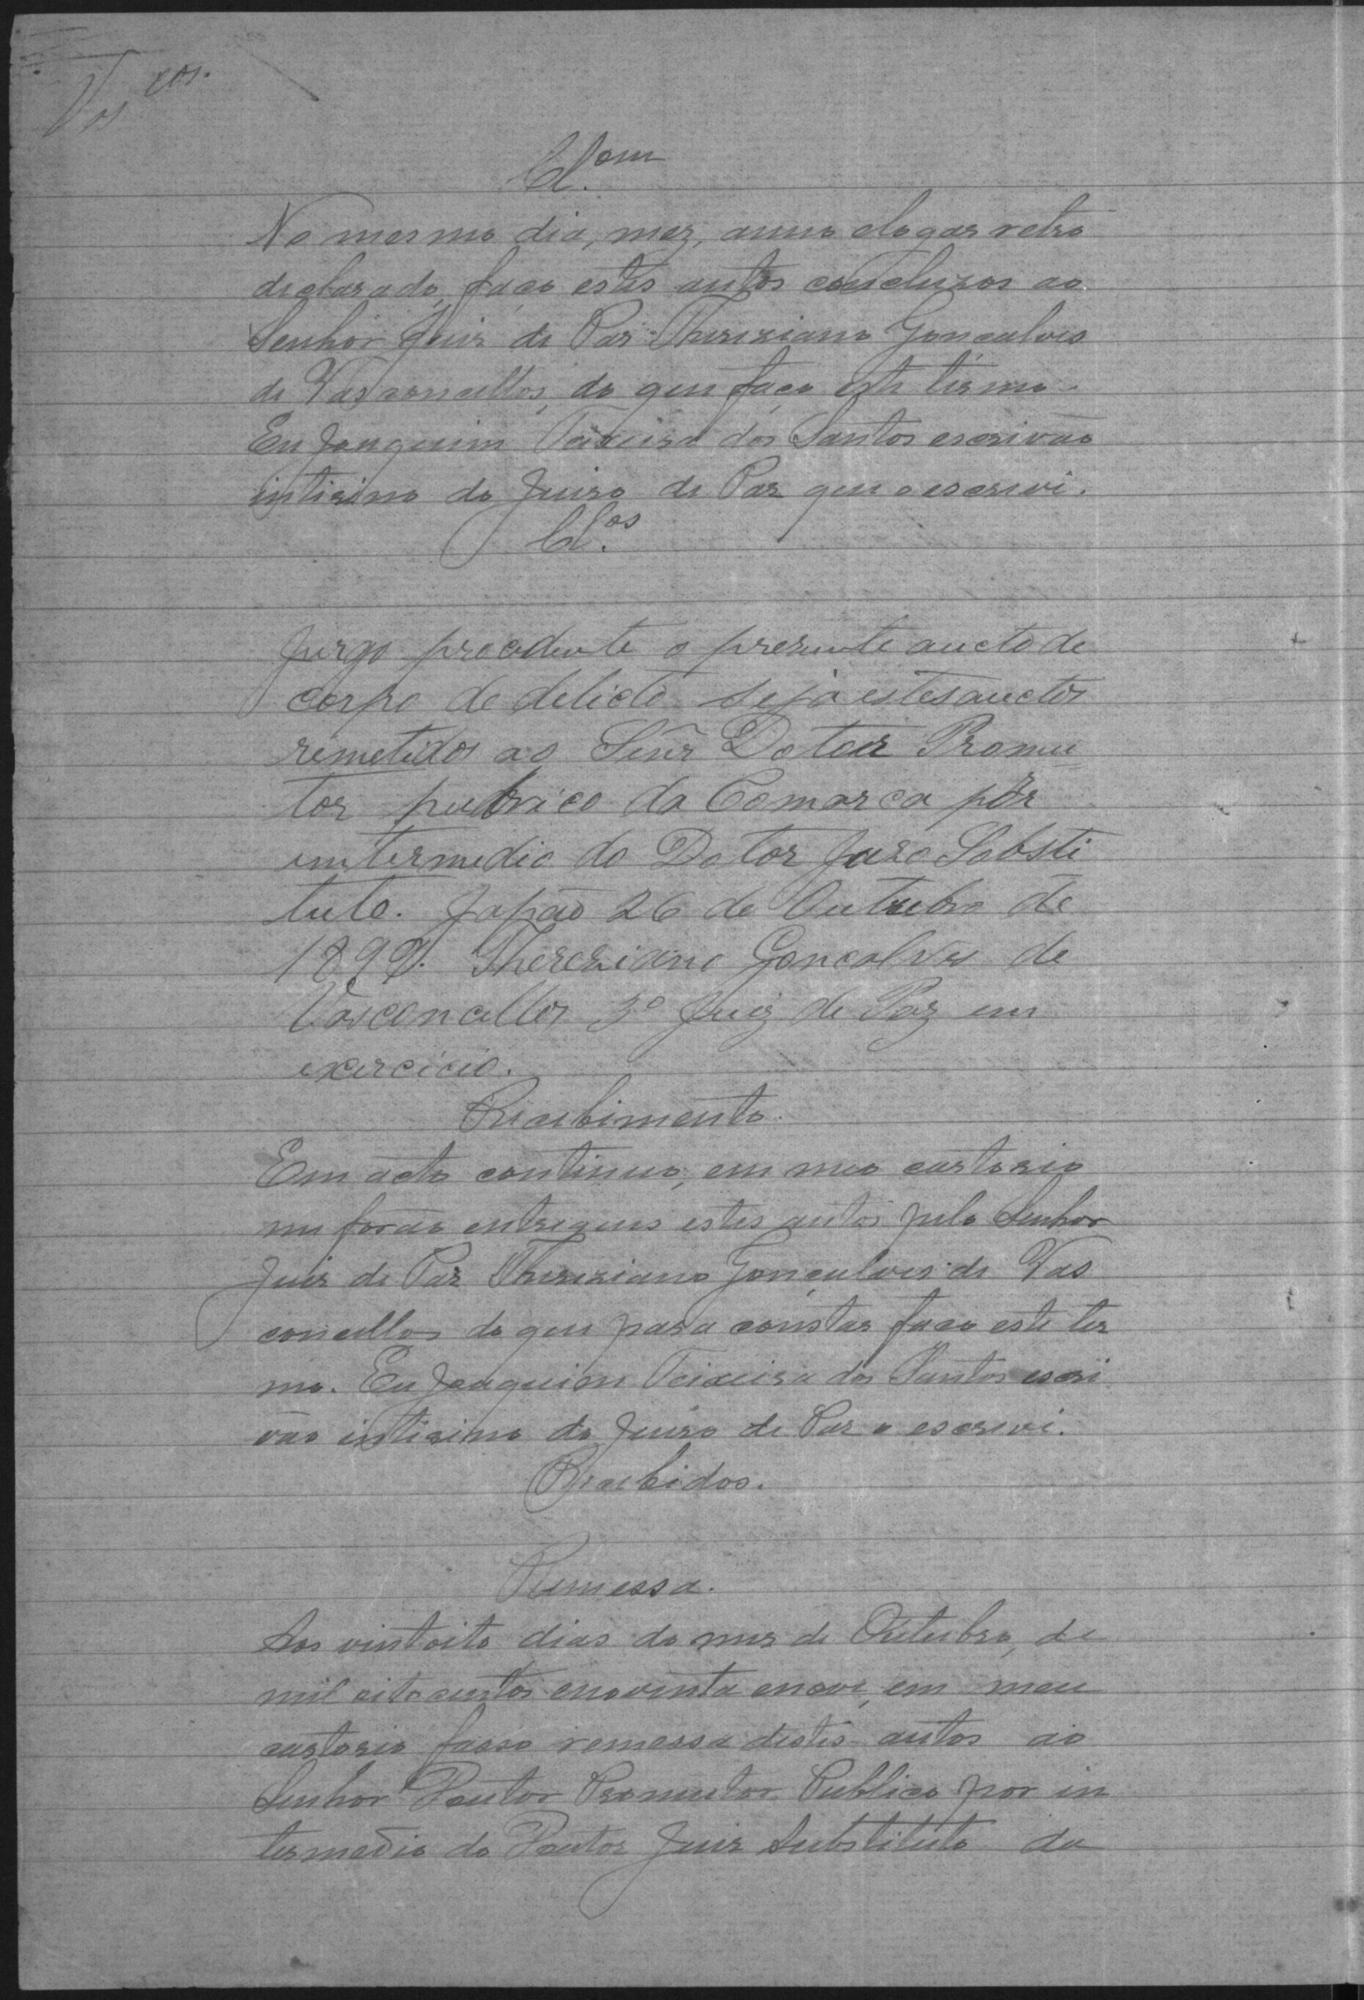 Vas cos.
Cl.om
No mesmo dia, mez, anno elogar retro
declarado, faço estes autos concluzos ao
Senhor Juiz de Paz Thereziano Gonçalves
de Vasconcellos, do que faço este termo.
Eu Joaquim Teixeira dos Santos escrivão
intirino do Juizo de Paz que o escrevi.
Cl.os
Jurgo procedente o prezente aucto de
corpo de delicto seja estes auctos
remetidos ao Señr Dotor Promu
tor pubrico da Comarca por
intermedio do Dotor Juzo Sobsti
tuto. Japão 26 de Outubro de
1899. Thereziano Goncalves de
Vasconcellos 3º Juiz de Paz em
exercicio.
Recebimento.
Em acto continuo, em meo cartorio
me forão entregues estes autos pelo Senhor
Juiz de Paz Thereziano Gonçalves de Vas
concellos do que para constar faço este ter
mo. Eu Joaquim Teixeira dos Santos escri
vão intirino do Juizo de Paz o escrevi.
Recebidos.
Remessa.
Aos vintoito dias do mez de Outubro, de
mil oitocentos enoventa enove, em meu
cartorio fasso remessa destes autos ao
Senhor Doutor Promutor Publico por in
termedio do Doutor Juiz Substituto da